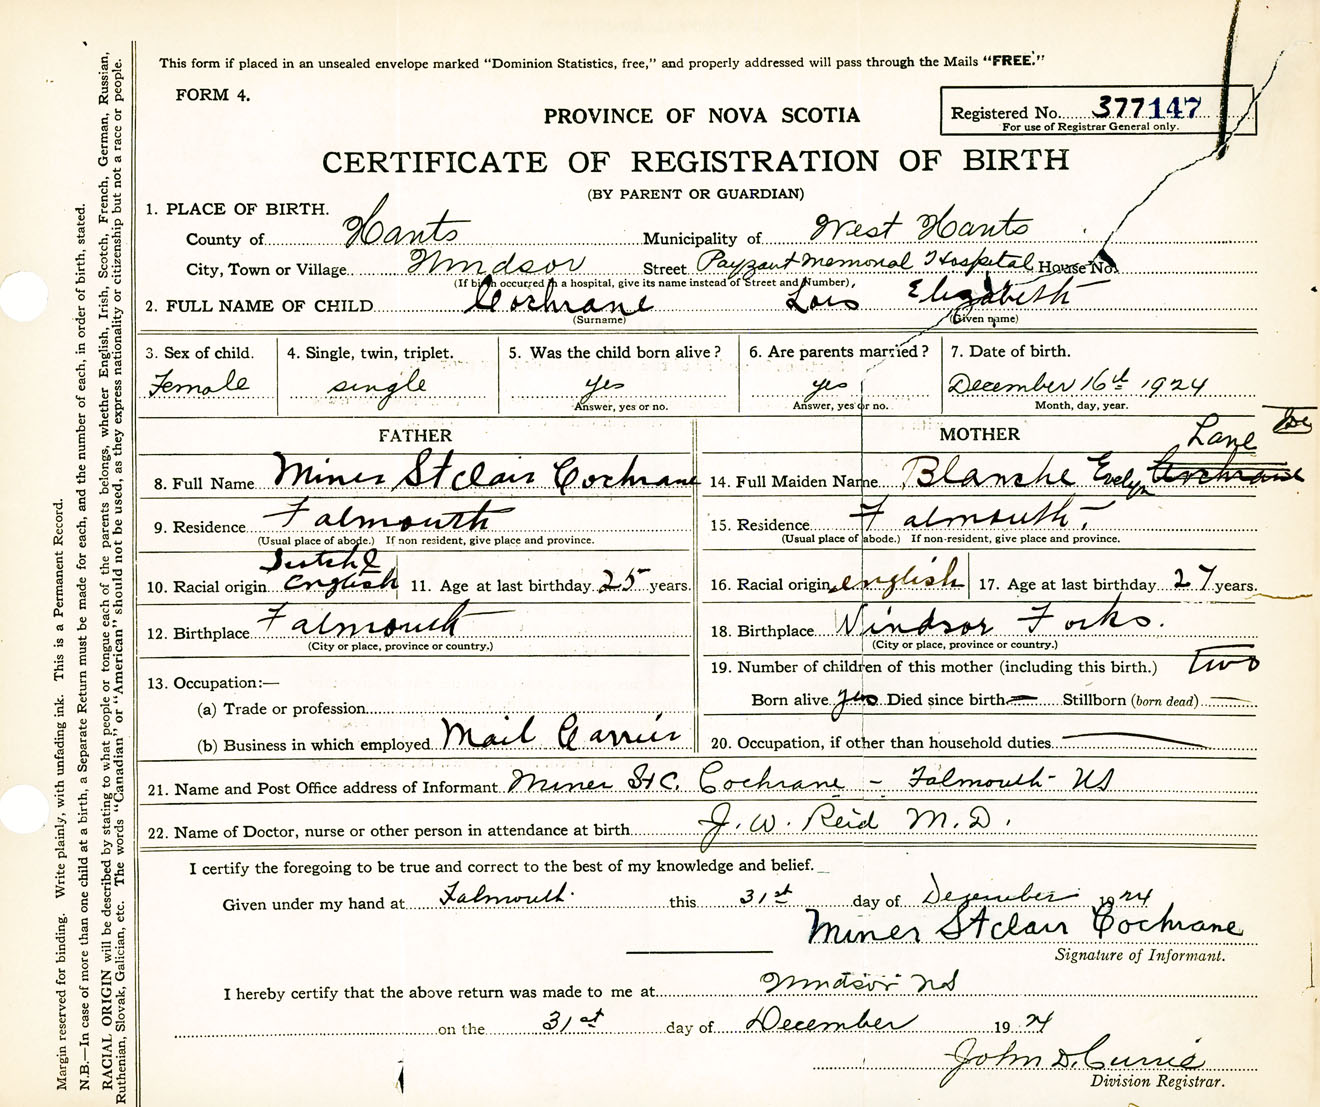 This form if placed in an unsealed envelope marked "Dominion Statistics, free," and properly addressed will pass through the Mails "FREE."
FORM 4.
PROVINCE OF NOVA SCOTIA
Registered No. 377147
For use of Registrar General only.
CERTIFICATE OF REGISTRATION OF BIRTH
(BY PARENT OR GUARDIAN)
1. PLACE OF BIRTH.
County of Hants Municipality of West Hants
City, Town or Village Windsor Street Payzant Memorial Hospital House No.
(If birth occurred in a hospital, give its name instead of Street and Number)
2. FULL NAME OF CHILD Cochrane Lois Elizabeth
(Surname) (Given name)
3. Sex of child. 4. Single, twin, triplet. 5. Was the child born alive? 6. Are parents married? 7. Date of birth.
Female single yes yes December 16th 1924
Answer, yes or no. Answer, yes or no. Month, day, year.
FATHER MOTHER Lane
8. Full Name Miner St Clair Cochrane 14. Full Maiden Name Blanche Evelyn Cochrane
9. Residence Falmouth 15. Residence Falmouth
(Usual place of abode.) If non resident, give place and province. (Usual place of abode.) If non-resident, give place and province.
Dutch &
10. Racial origin English 11. Age at last birthday 25 years. 16. Racial origin english 17. Age at last birthday 27 years.
12. Birthplace Falmouth 18. Birthplace Windsor Forks.
(City or place, province or country.) (City or place, province or country.)
19. Number of children of this mother (including this birth.) two
13. Occupation:—
Born alive yes Died since birth — Stillborn (born dead) —
(a) Trade or profession
(b) Business in which employed Mail Carrier 20. Occupation, if other than household duties —
21. Name and Post Office address of Informant Miner St C. Cochrane - Falmouth - NS
22. Name of Doctor, nurse or other person in attendance at birth J. W. Reid M.D.
I certify the foregoing to be true and correct to the best of my knowledge and belief.
Given under my hand at Falmouth this 31st day of December 1924
Miner St Clair Cochrane
Signature of Informant.
I hereby certify that the above return was made to me at Windsor NS
on the 31st day of December 1924
John D. Currie
Division Registrar.
Margin reserved for binding. Write plainly, with unfading ink. This is a Permanent Record.
N.B.—In case of more than one child at a birth, a Separate Return must be made for each, and the number of each, in order of birth, stated.
RACIAL ORIGIN will be described by stating to what people or tongue each of the parents belongs, whether English, Irish, Scotch, French, German, Russian,
Ruthenian, Slovak, Galician, etc. The words "Canadian" or "American" should not be used, as they express nationality or citizenship but not a race or people.